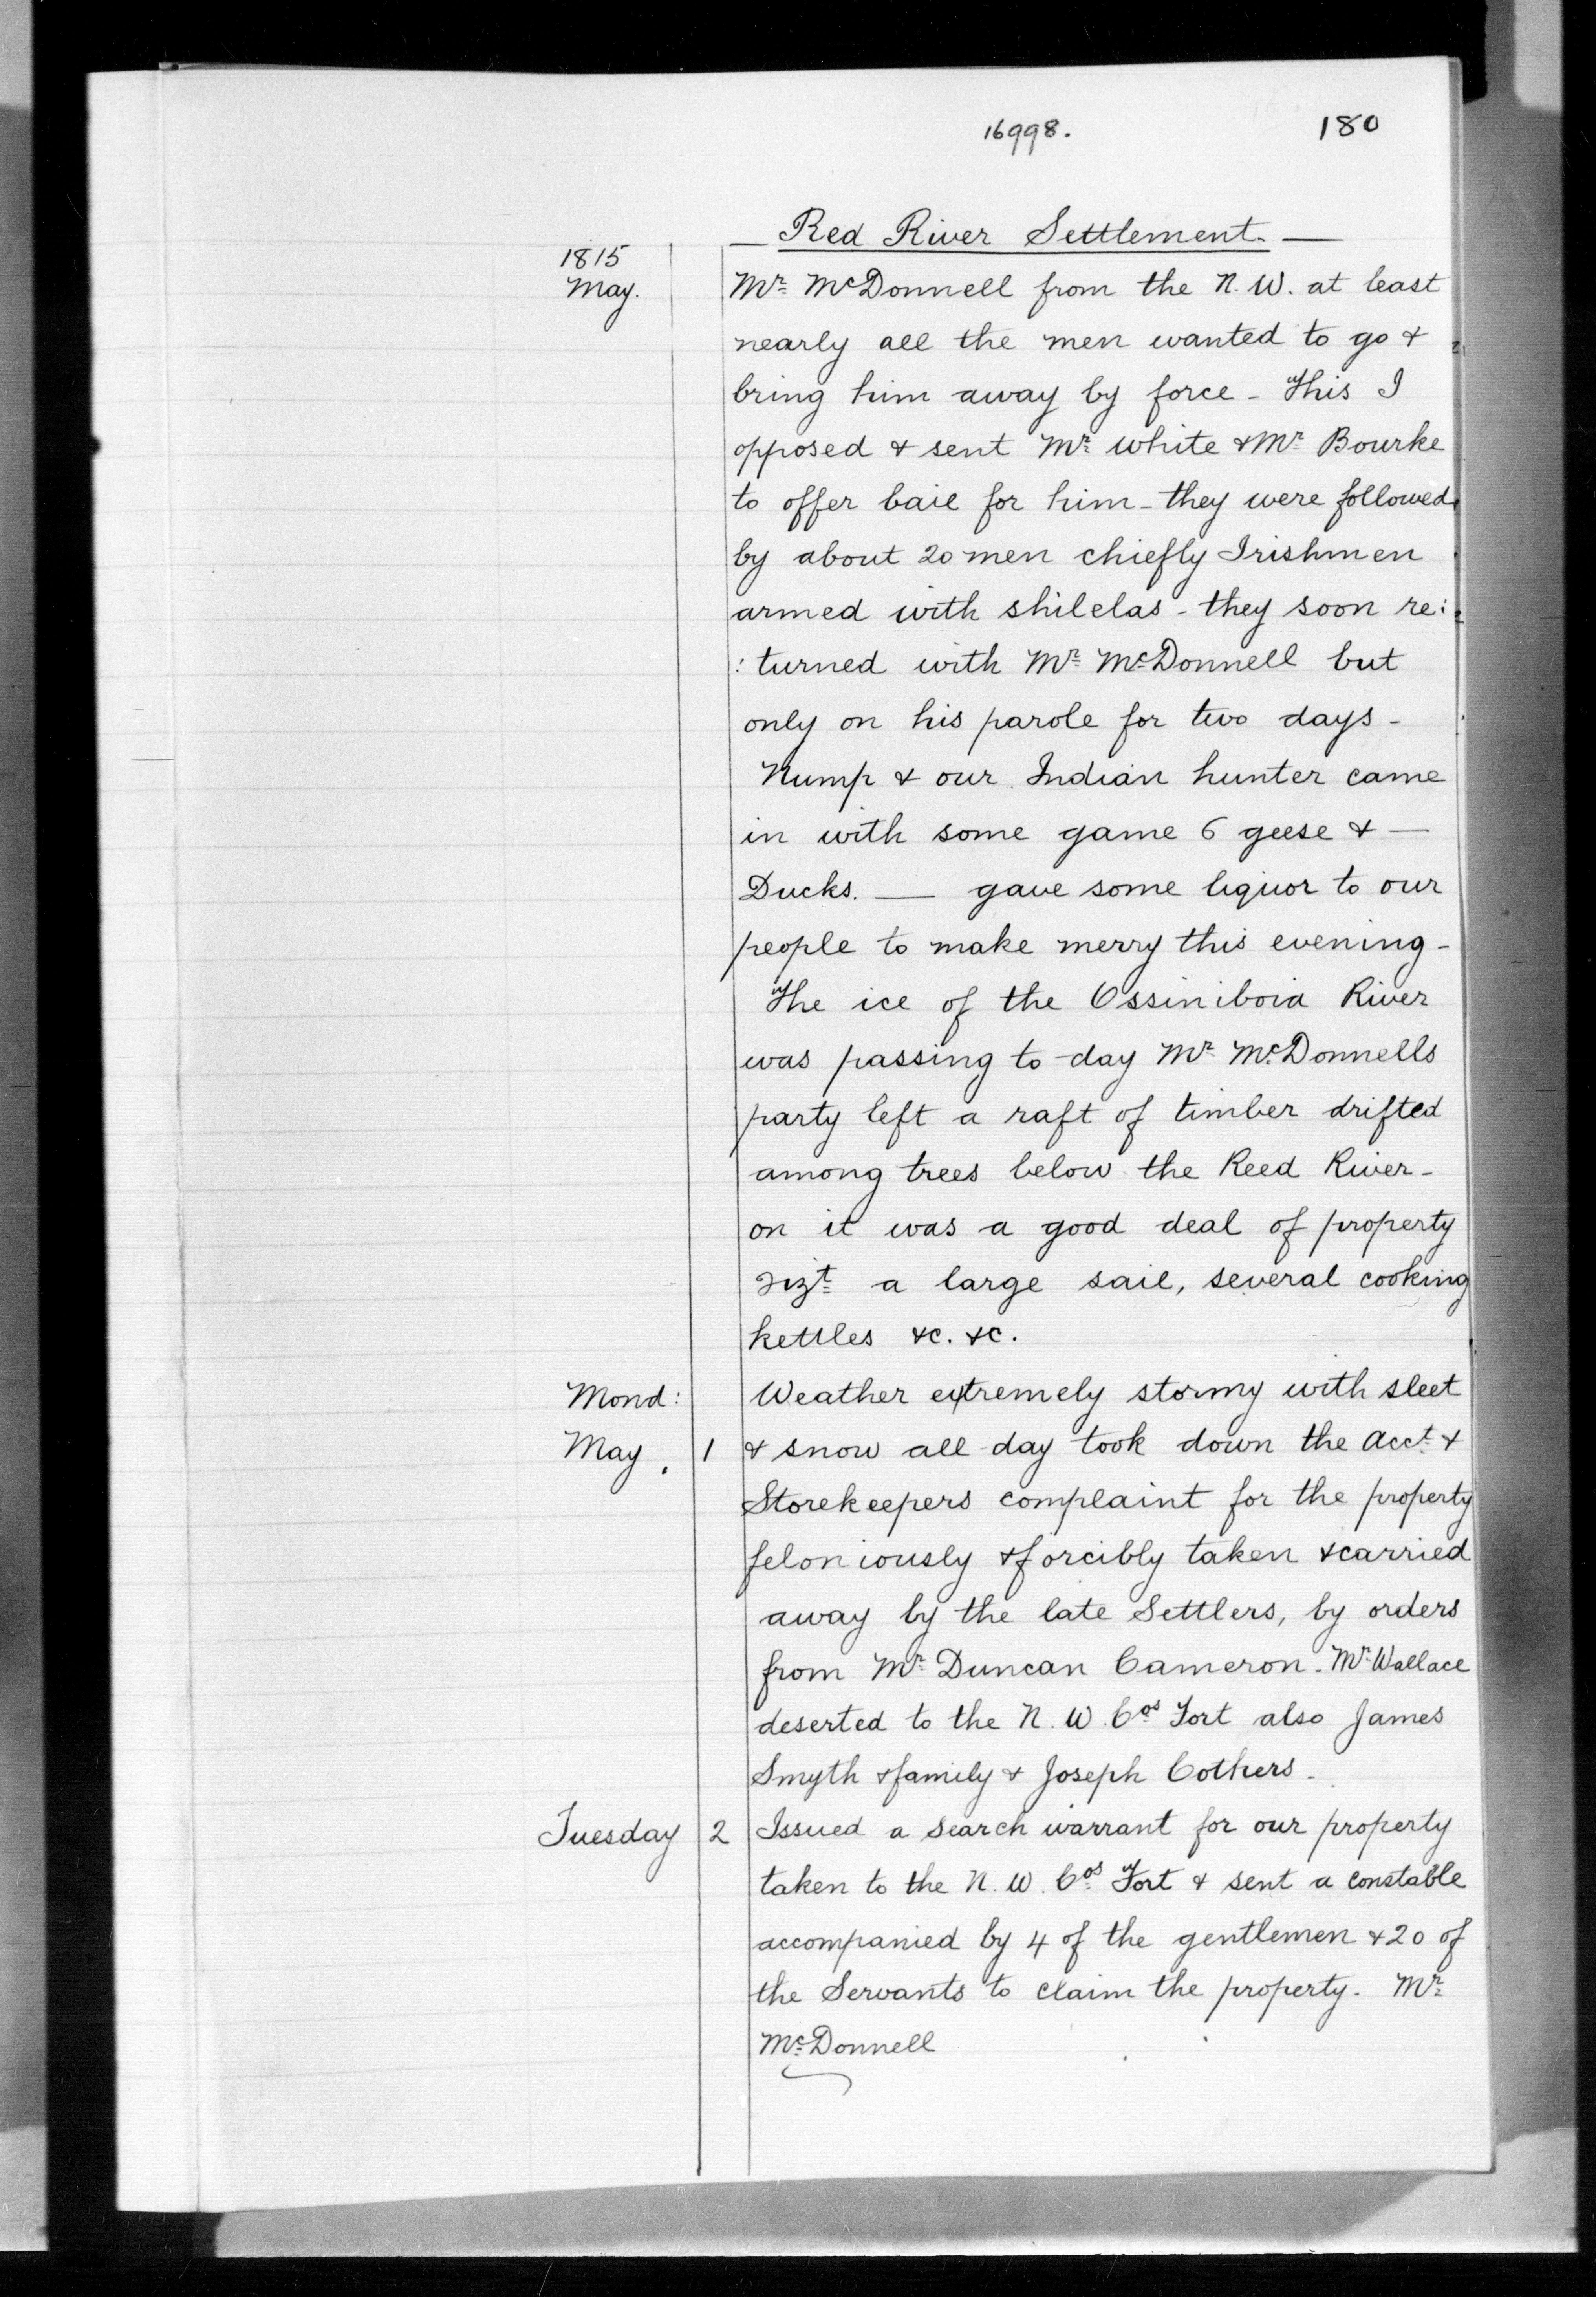 16998.
180
Red River Settlement.
1815
May.
Mr McDonnell from the N. W. at least
nearly all the men wanted to go &
bring him away by force - This I
opposed & sent Mr White & Mr Bourke
to offer bail for him - they were followed
by about 20 men chiefly Irishmen
armed with shilelas - they soon re:
: turned with Mr McDonnell but
only on his parole for two days -
Nump & our Indian hunter came
in with some game 6 geese & —
Ducks. — gave some liquor to our
people to make merry this evening -
The ice of the Ossiniboia River
was passing to-day Mr McDonnells
party left a raft of timber drifted
among trees below the Reed River -
on it was a good deal of property
vizt a large sail, several cooking
kettles &c. &c.
Mond: Weather extremely stormy with sleet
May, 1 & snow all day took down the Acct &
Storekeepers complaint for the property
feloniously & forcibly taken & carried
away by the late Settlers, by orders
from Mr Duncan Cameron. Mr Wallace
deserted to the N. W. Cos Fort also James
Smyth & family & Joseph Cothers -
Tuesday 2 Issued a search warrant for our property
taken to the N. W. Cos Fort & sent a constable
accompanied by 4 of the gentlemen & 20 of
the Servants to claim the property. Mr
McDonnell